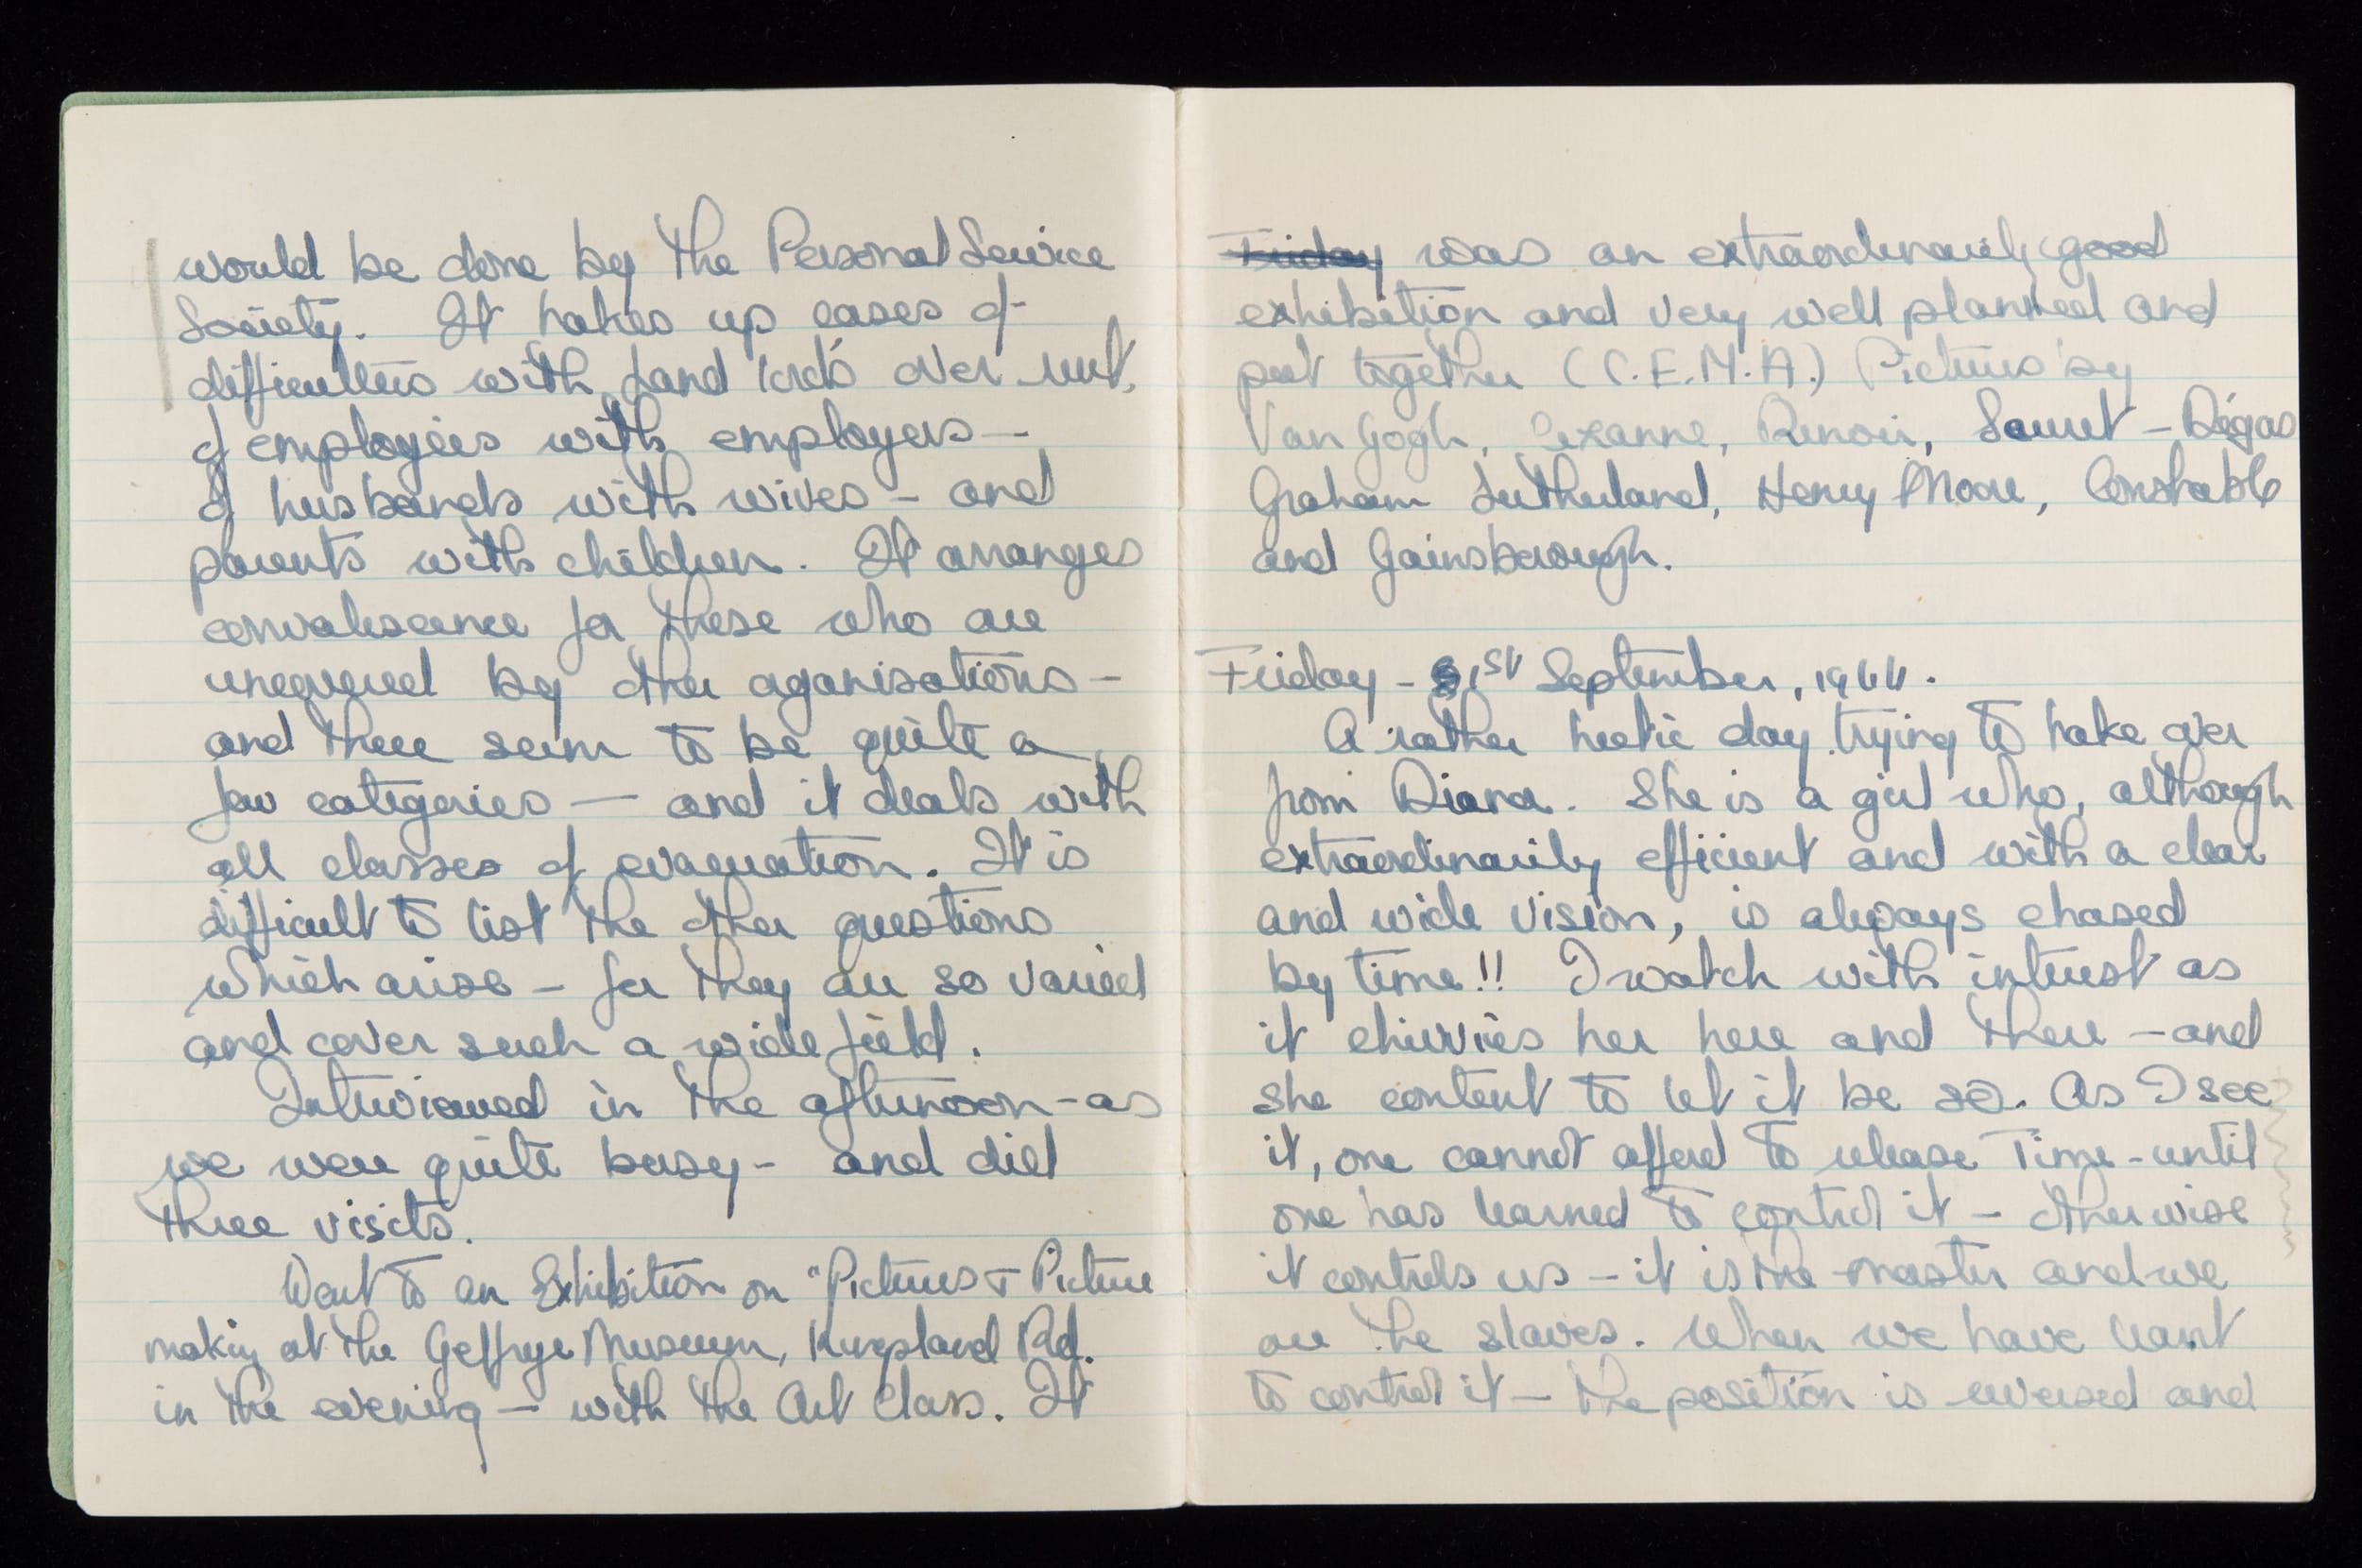 would be done by the Personal Service
Society. It takes up cases of
difficulties with land lords over rent,
of employees with employers —
of husbands with wives - and
parents with children. It arranges
convalescence for those who are
uncovered by other organisations -
and there seem to be quite a
few categories — and it deals with
all classes of evacuation. It is
difficult to list the other questions
which arise - for they are so varied
and cover such a wide field.
Interviewed in the afternoon - as
we were quite busy - and did
three visits.
Went to an Exhibition on "Pictures & Picture
making at the Geffrye Museum, Kingsland Rd.
in the evening - with the Art Class. It
Friday was an extraordinarily good
exhibition and very well planned and
put together (C.E.M.A.) Pictures by
Van Gogh, Cezanne, Renoir, Seurat - Dégas
Graham Sutherland, Henry Moore, Constable
and Gainsborough.
Friday - 1st September, 1944.
A rather hectic day trying to take over
from Diana. She is a girl who, although
extraordinarily efficient and with a clear
and wide vision, is always chased
by time!! I watch with interest as
it chivvies her here and there - and
she content to let it be so. As I see
it, one cannot afford to release Time - until
one has learned to control it - otherwise
it controls us - it is the master and we
are the slaves. When we have learnt
to control it - the position is reversed and